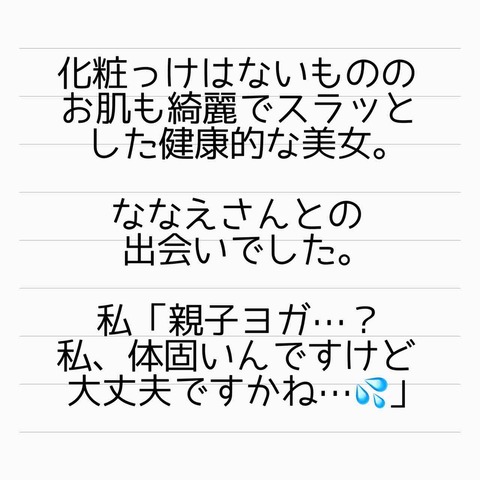 化粧っけはないものの
お肌も綺麗でスラッと
した健康的な美女。
ななえさんとの
出会いでした。
私「親子ヨガ…？
私、体固いんですけど
大丈夫ですかね…💦」